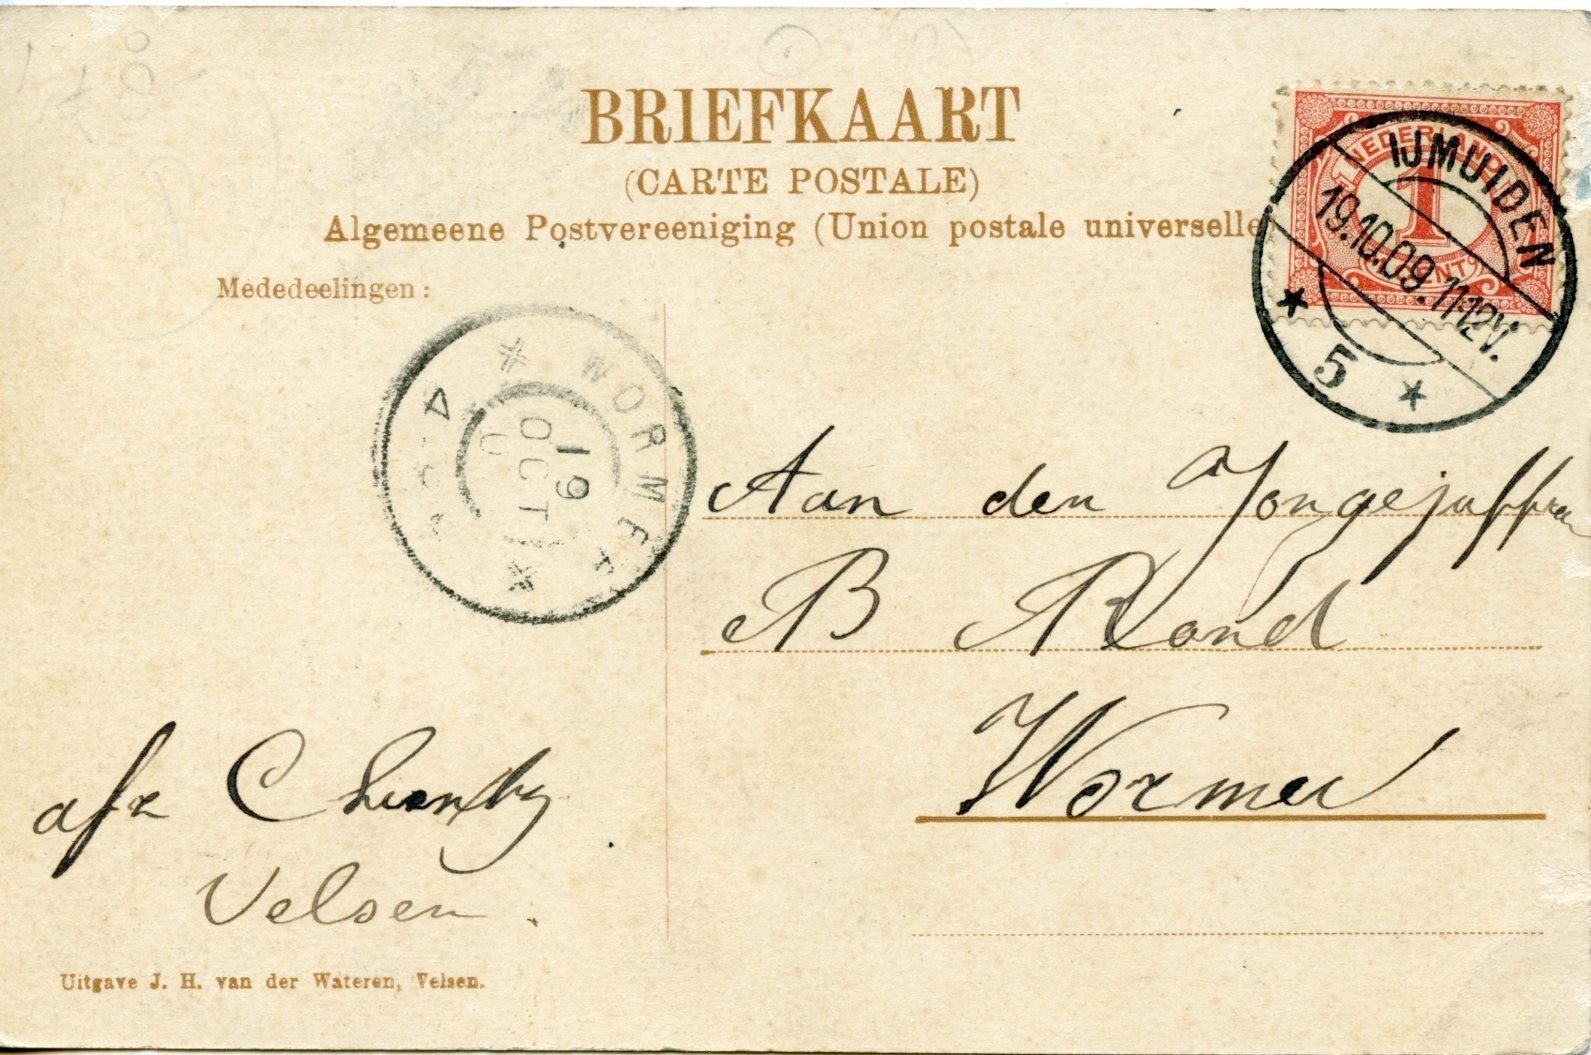 BRIEFKAART
(CARTE POSTALE)
Algemeene Postvereeniging (Union postale universelle
Mededeelingen:
NEDERLAND
1
CENT
IJMUIDEN
19.10.09.11-12V.
5
WORMER
19
OCT
Aan den Jongejuffrou
B Rond
Wormer
afz C
Velsen.
Uitgave J. H. van der Wateren, Velsen.